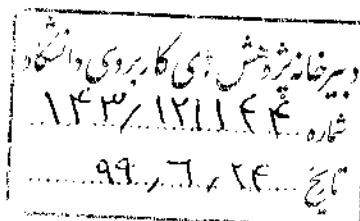 دبیرخانه پژوهش های کاربردی دانشگاه
شماره ۱۴۳/۱۲۱۱۴۴
تاریخ ۹۹/۶/۲۴